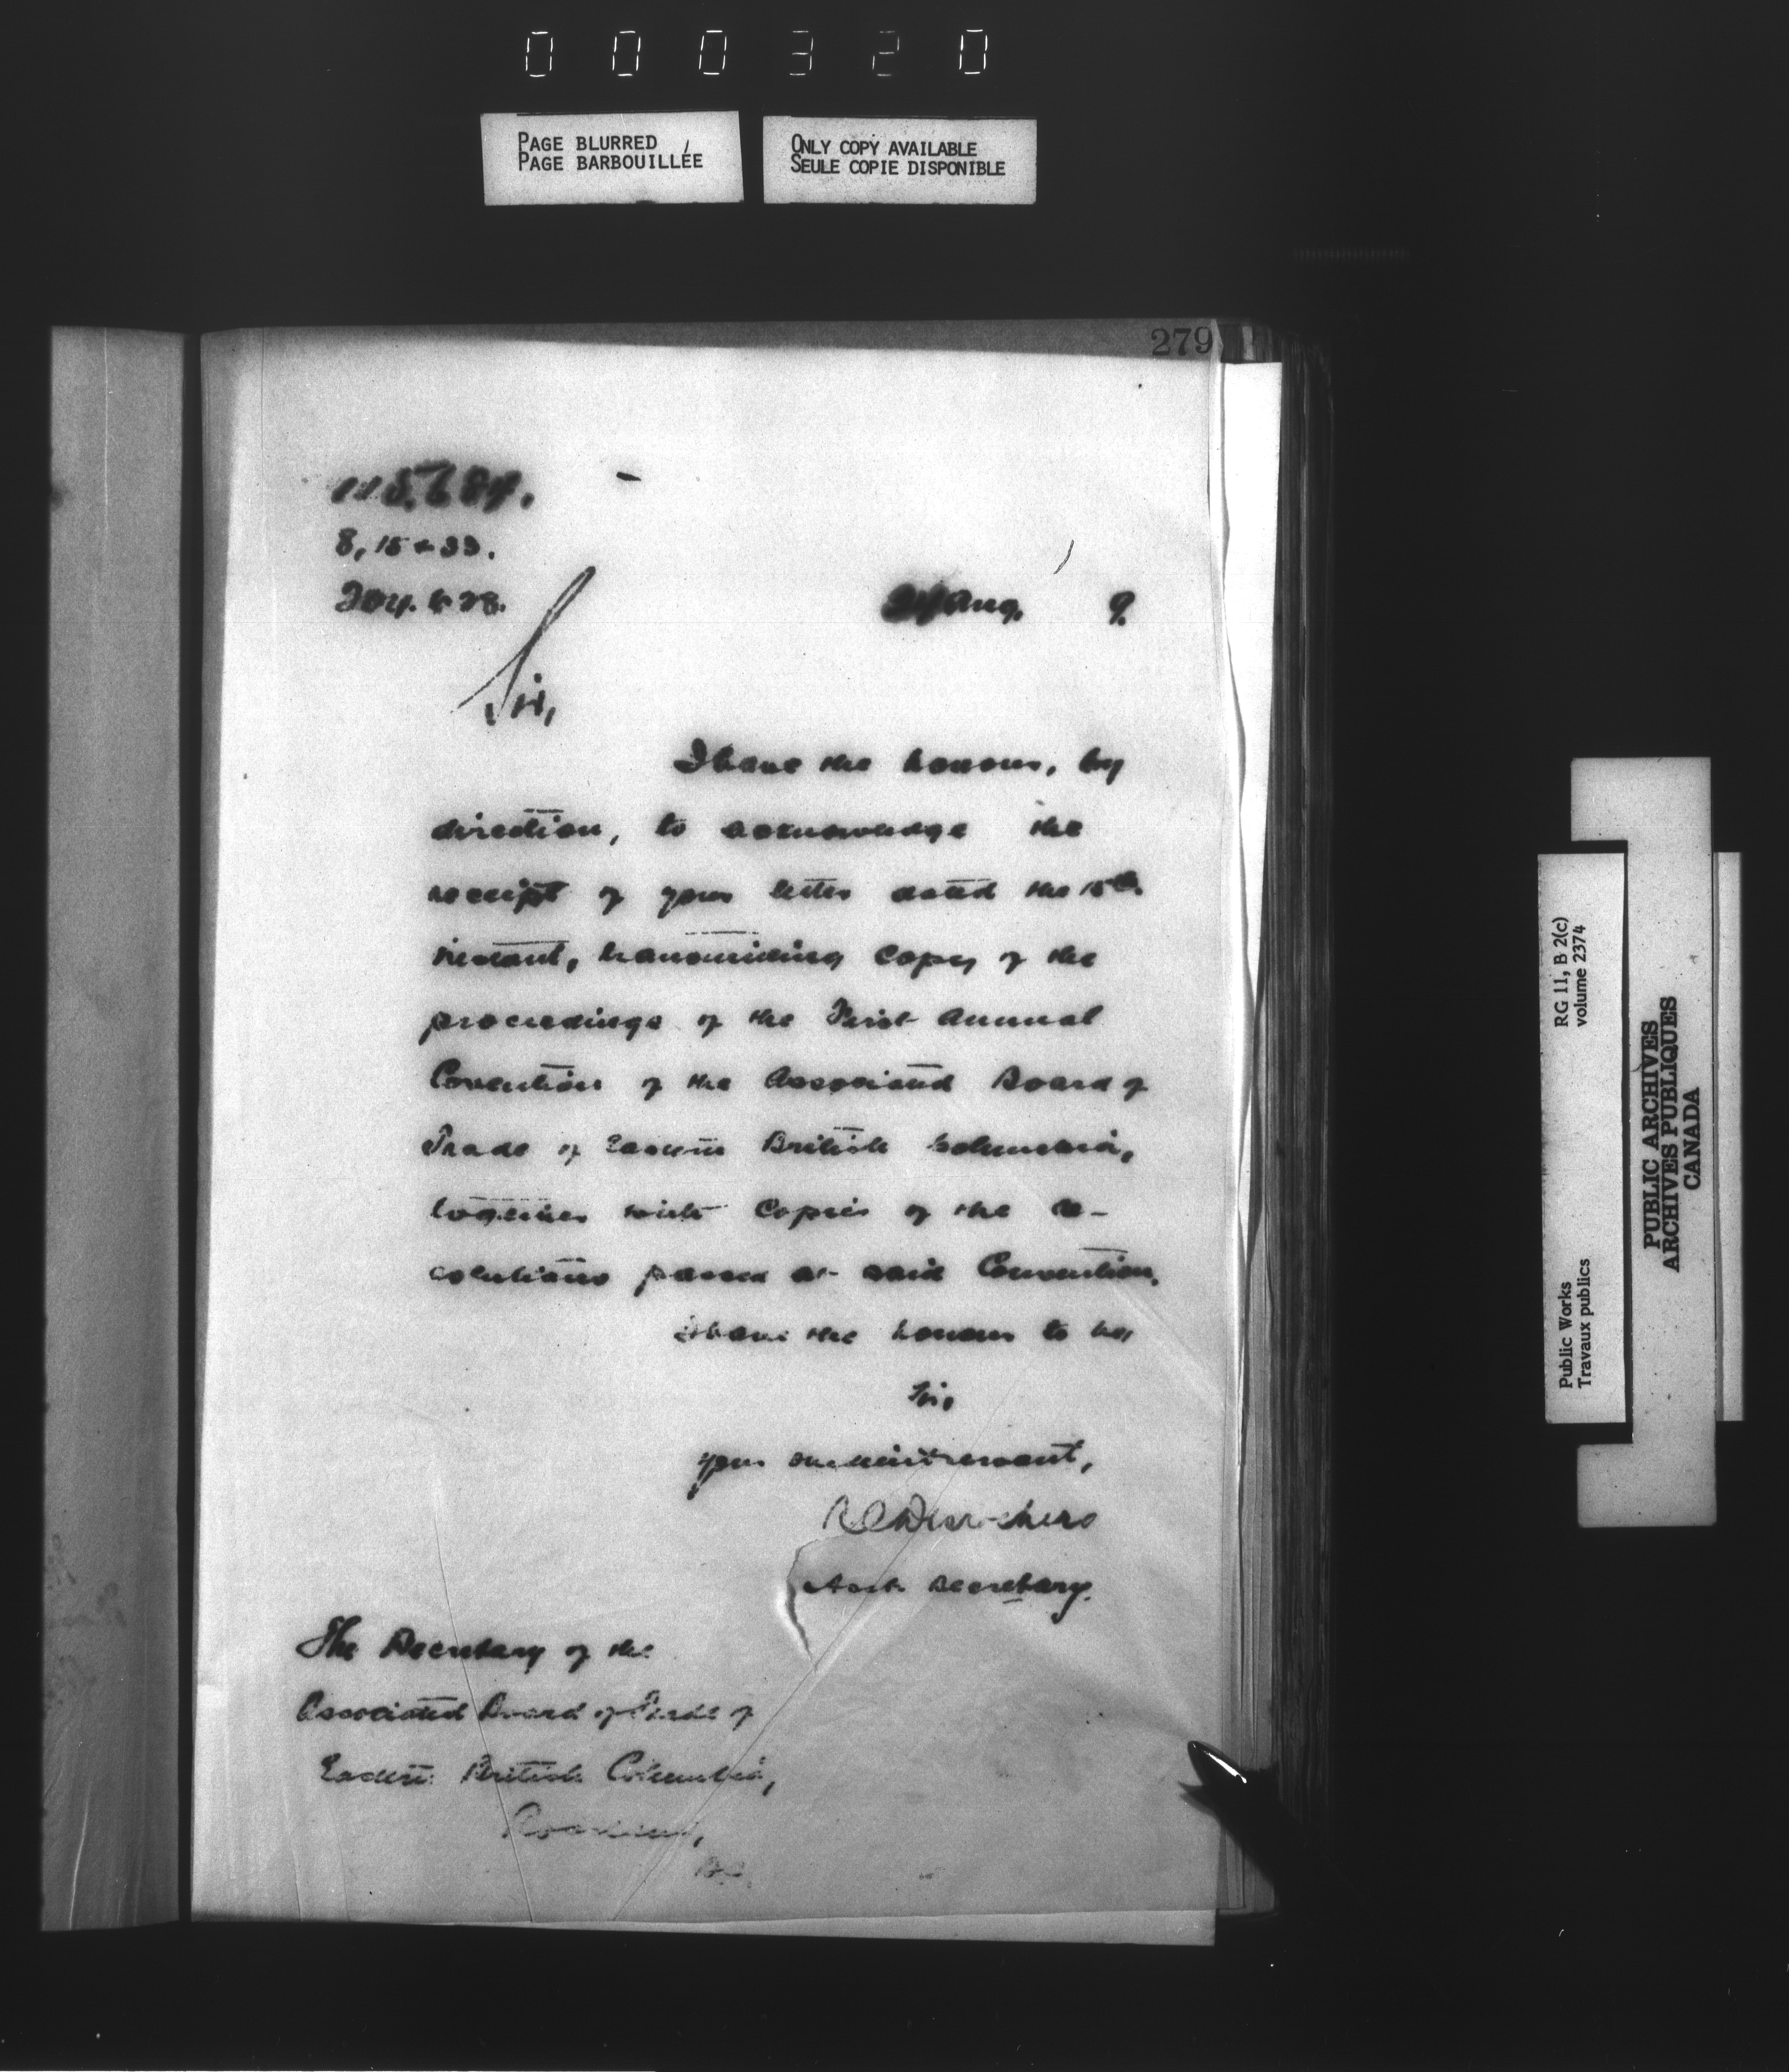 000320
PAGE BLURRED
PAGE BARBOUILLÉE
ONLY COPY AVAILABLE
SEULE COPIE DISPONIBLE
279
8, 15 & 33.
Aug. 9.
Sir,
I have the honour, by
direction, to acknowledge the
receipt of your letter dated the 15th
instant, transmitting copy of the
proceedings of the First Annual
Convention of the Associated Board of
Trade of Eastern British Columbia,
together with copies of the re-
solutions passed at said Convention.
I have the honour to be,
Sir,
Your obedient servant,
Asst. Secretary.
The Secretary of the
Associated Board of Trade of
Eastern British Columbia,
Rossland,
B.C.
RG 11, B 2(c)
volume 2374
Public Works
Travaux publics
PUBLIC ARCHIVES
ARCHIVES PUBLIQUES
CANADA